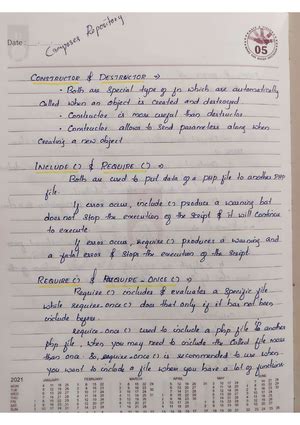 Date :
Composer Repository
05
CONSTRUCTOR & DESTRUCTOR →
• Both are special type of fn which are automatically
called when an object is created and destroyed
• Constructor is more useful than destructor
• Constructor allows to send parameters along when
creating a new object
INCLUDE () & REQUIRE () →
Both are used to put data of a php file to another PHP
file.
If error occurs, include () produce a warning but
does not stop the execution of the script & it will continue
to execute
If error occur, require () produces a warning and
a fatal error & stops the execution of the script
REQUIRE () & REQUIRE_ONCE () →
Require () includes & evaluates a specific file
while require_once () does that only if it has not been
include before.
require_once () used to include a php file to another
php file, when you may need to include the called file more
than once. So, require_once () is recommended to use when
you want to include a file where you have a lot of functions
2021
JANUARY
FEBRUARY
MARCH
APRIL
MAY